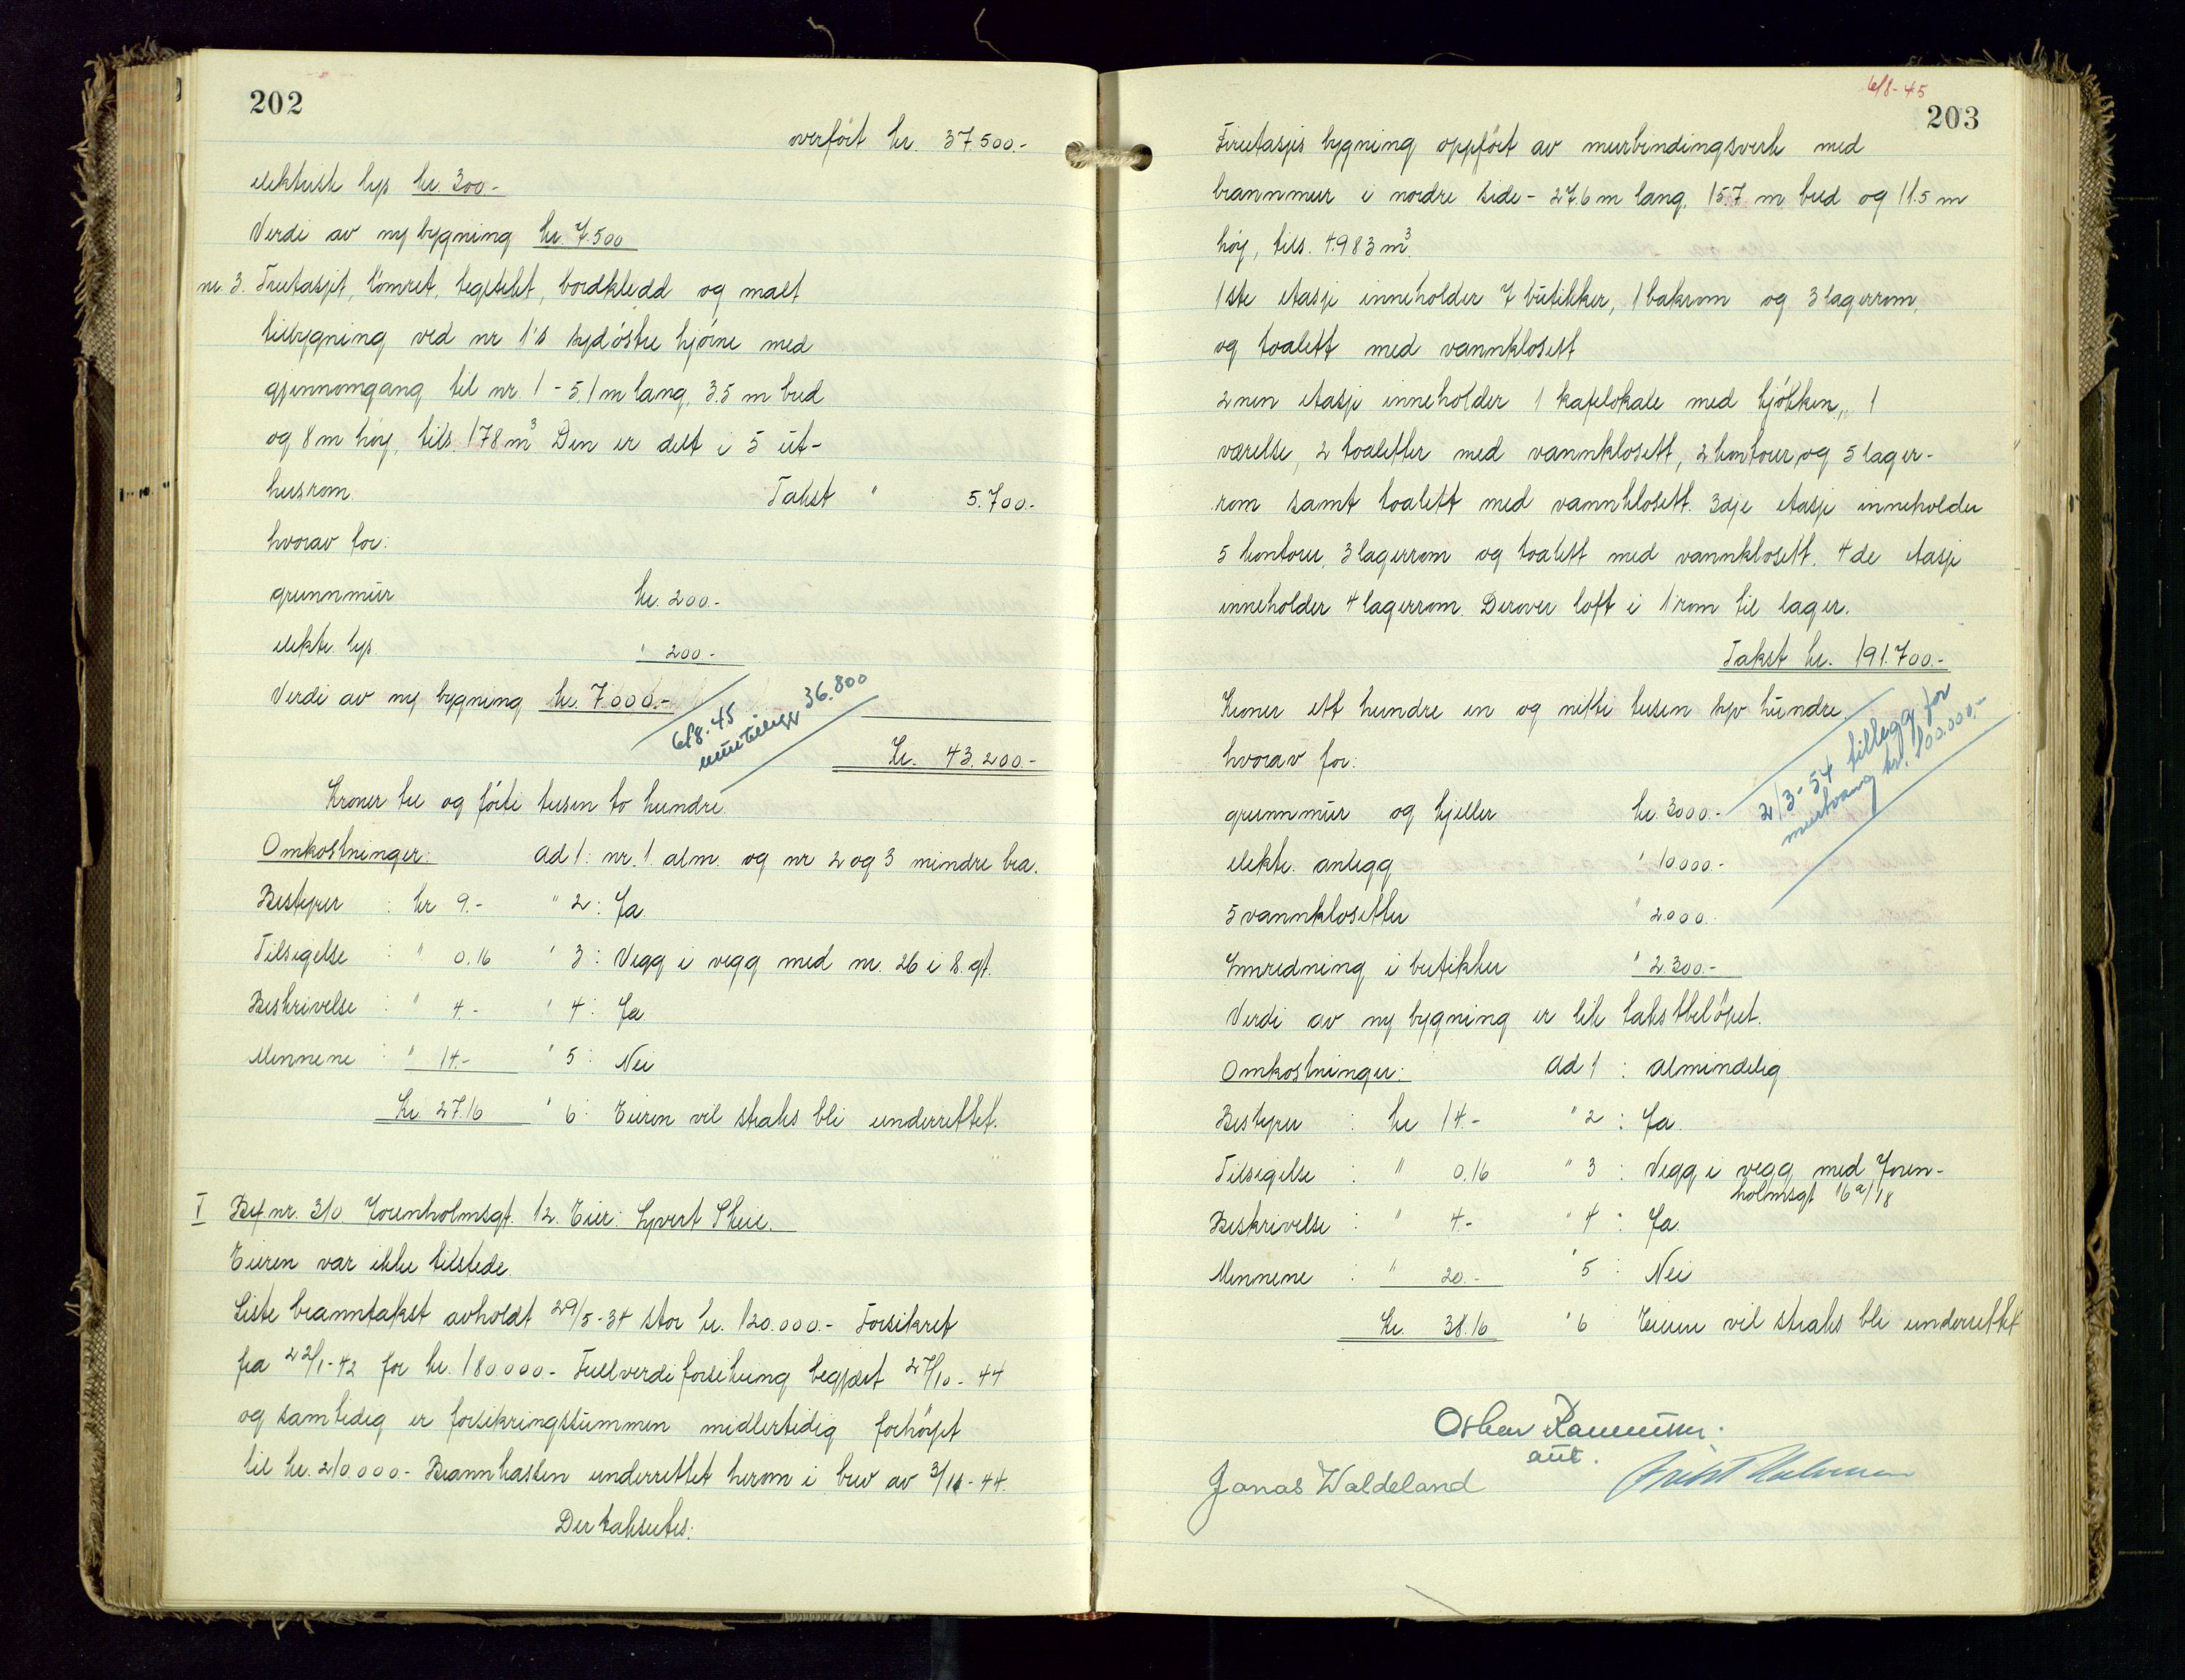 202
overført kr. 37.500.-
elektrisk lys kr. 300.-
Verdi av ny bygning kr. 7.500
nr. 3. Treetasjet, tømret, teglsekket, bordkledd og malt
tilbygning ved nr 1's sydøstre hjørne med
gjennomgang til nr. 1 - 5,1 m lang, 3.5 m bred
og 8 m høy, tils. 178 m³ Den er delt i 5 ut-
husrom. Takst " 5.700.-
hvorav for:
grunnmur kr. 200.-
elektr. lys. " 200.-
Verdi av ny bygning kr. 7.000.-
6/8-45
murtillegg 36.800
Kr. 43.200.-
Kroner tre og førti tusen to hundre.
Omkostninger: Ad 1: nr. 1 alm. og nr 2 og 3 mindre bra.
Bestyrer : kr 9.- " 2: Ja.
Tilsigelse : " 0.16 " 3: Vegg i vegg med nr. 26 i 8. gt.
Beskrivelse : " 4.- " 4: Ja.
Mennene : " 14.- " 5: Nei
Kr. 27.16 " 6: Eieren vil straks bli underrettet.
V Bef. nr. 310. Jorenholmsgt. 12. Eier: Syvert Skeie.
Eieren var ikke tilstede.
Siste branntakst avholdt 29/5-34 stor kr. 120.000.- Forsikret
fra 22/1-42 for kr. 180.000.- Fullverdiforsikring begjært 27/10-44
og samtidig er forsikringssummen midlertidig forhøyet
til kr. 210.000.- Brannkassen underrettet herom i brev av 3/11-44.
Der takseres:
6/8-45
203
Fireetasjes bygning oppført av murbindingsverk med
brannmur i nordre side - 27.6 m lang. 15.7 m bred og 11.5 m
høy, tils. 4.983 m³.
1ste etasje inneholder 7 butikker, 1 bakrom og 3 lagerrom,
og toalett med vannklosett
2nen etasje inneholder 1 kafelokale med kjøkken, 1
værelse, 2 toaletter med vannklosett, 2 kontorer og 5 lager-
rom samt toalett med vannklosett. 3dje etasje inneholder
5 kontorer, 3 lagerrom og toalett med vannklosett. 4de etasje
inneholder 4 lagerrom. Derover loft i 1 rom til lager.
Takst kr. 191.700.-
Kroner ett hundre en og nitti tusen syv hundre.
hvorav for:
2/3-54 tillegg for
murtvang kr. 100.000.-
grunnmur og kjeller kr. 3000.-
elektr. anlegg " 10000.-
5 vannklosetter " 2000.
Innredning i butikker " 2.300.-
Verdi av ny bygning er lik takstbeløpet.
Omkostninger: Ad 1 : Almindelig
Bestyrer : kr 14.- " 2 : Ja.
Tilsigelse : " 0.16 " 3 : Vegg i vegg med Joren-
holmsgt 16a/18
Beskrivelse : " 4.- " 4 : Ja.
Mennene : " 20.- " 5 : Nei
Kr. 38.16 " 6 Eieren vil straks bli underrettet
Oskar Rasmussen.
aut.
Jonas Waldeland